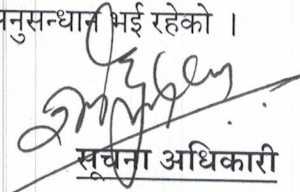 अनुसन्धान भई रहेको ।
सूचना अधिकारी